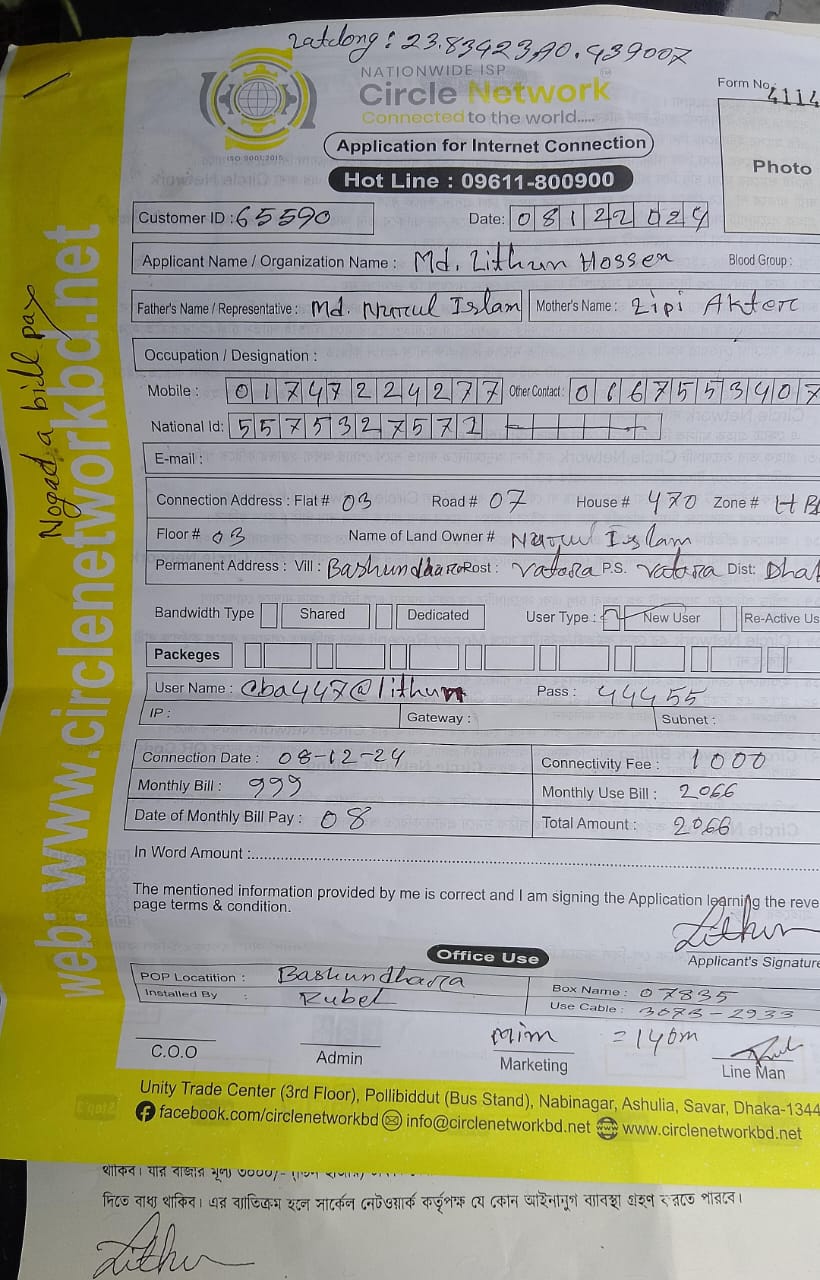 Latdong: 23.83423,90.439007
NATIONWIDE ISP
Circle Network
Connected to the world.....
ISO 9001:2015
Form No. 4114
Application for Internet Connection
Photo
Hot Line : 09611-800900
Customer ID : 65590 Date: 08122024
Applicant Name / Organization Name : Md. Lithun Hossen Blood Group :
Father's Name / Representative : Md. Nurul Islam Mother's Name : Lipi Akter
Occupation / Designation :
Mobile : 01747224277 Other Contact : 0167553407
National Id: 5575327571
E-mail :
Connection Address : Flat # 03 Road # 07 House # 470 Zone #
Floor # 03 Name of Land Owner # Nurul Islam
Permanent Address : Vill : Bashundhara Post : Vatara P.S. Vatara Dist: Dhak
Bandwidth Type Shared Dedicated User Type : New User Re-Active Us
Packeges
User Name : cba447@lithun Pass : 44455
IP : Gateway : Subnet :
Connection Date : 08-12-24 Connectivity Fee : 1000
Monthly Bill : 999 Monthly Use Bill : 2066
Date of Monthly Bill Pay : 08 Total Amount : 2066
In Word Amount :
The mentioned information provided by me is correct and I am signing the Application learning the reve
page terms & condition.
Lithun
Applicant's Signature
Office Use
POP Locatition : Bashundhara Box Name : 07835
Installed By : Rubel Use Cable : 3073-2933
Mim =140m
C.O.O Admin Marketing Line Man
Unity Trade Center (3rd Floor), Pollibiddut (Bus Stand), Nabinagar, Ashulia, Savar, Dhaka-1344
facebook.com/circlenetworkbd info@circlenetworkbd.net www.circlenetworkbd.net
web: www.circlenetworkbd.net
Nogad a bill pay
থাকিব। যার বাজার মূল্য ৩০০০/-
দিতে বাধ্য থাকিব। এর ব্যতিক্রম হলে সার্কেল নেটওয়ার্ক কর্তৃপক্ষ যে কোন আইনানুগ ব্যবস্থা গ্রহণ করতে পারবে।
Lithun